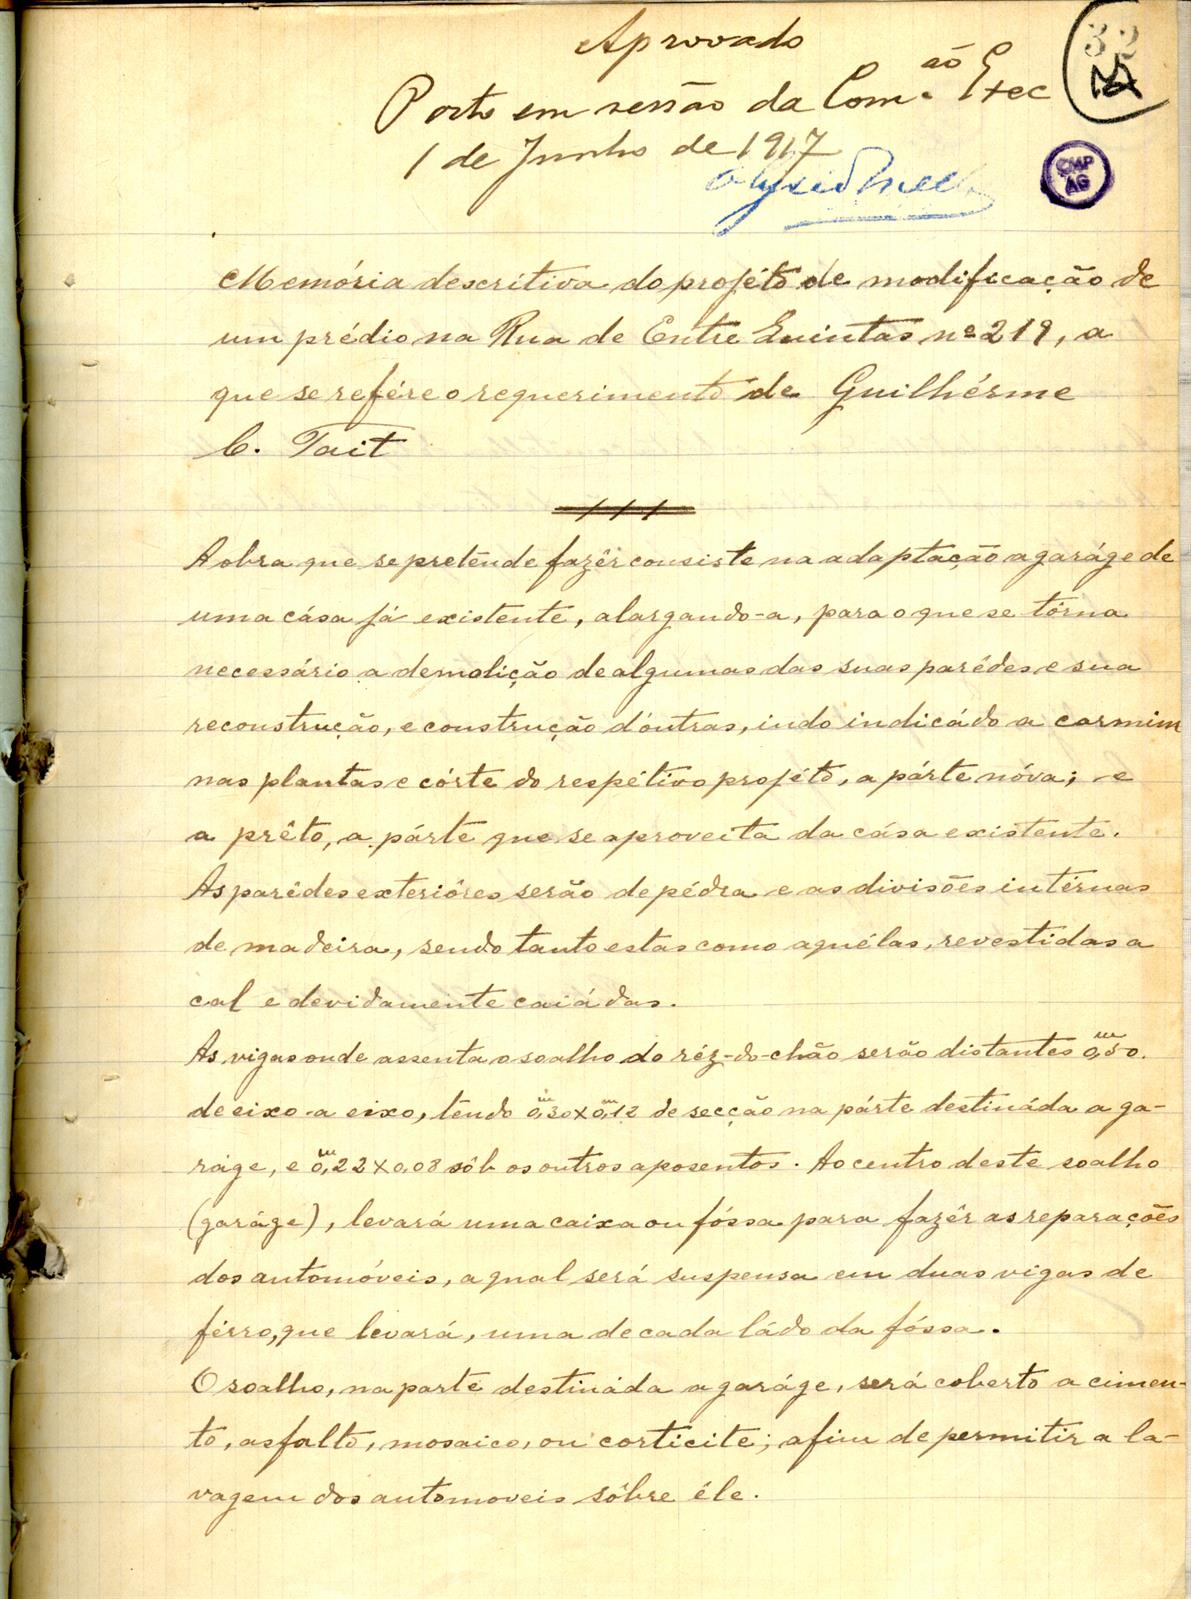 Aprovado
32
Porto em sessão da Com.ão Exec
1 de Junho de 1917
CMP
AG
Memória descritiva do projéto de modificação de
um prédio na Rua de Entre Quintas nº 219, a
que se refére o requerimento de Guilhérme
C. Tait
A obra que se preténde fazêr consiste na adaptação a garáge de
uma cása já existente, alargando-a, para o que se tórna
necessário a demolição de algumas das suas parêdes e sua
reconstrução, e construção d'outras, indo indicádo a carmim
nas plantas e córte do respétivo projéto, a párte nóva; e
a prêto, a párte que se aproveita da cása existente.
As parêdes exteriôres serão de pédra e as divisões intérnas
de madeira, sendo tanto estas como aquélas, revestidas a
cal e devidamente caiádas.
As vigas onde assenta o soalho do réz-do-chão serão distantes 0,m50.
de eixo a eixo, tendo 0,m30 x 0,m12 de secção na párte destináda a ga-
ráge, e 0,m22 x 0,08 sôb os outros aposentos. Ao centro deste soalho
(garáge), levará uma caixa ou fóssa para fazêr as reparações
dos automóveis, a qual será suspensa em duas vigas de
férro, que levará, uma de cada ládo da fóssa.
O soalho, na parte destináda a garáge, será coberto a cimen-
to, asfalto, mosaico, ou corticite; afim de permitir a la-
vagem dos automoveis sôbre éle.